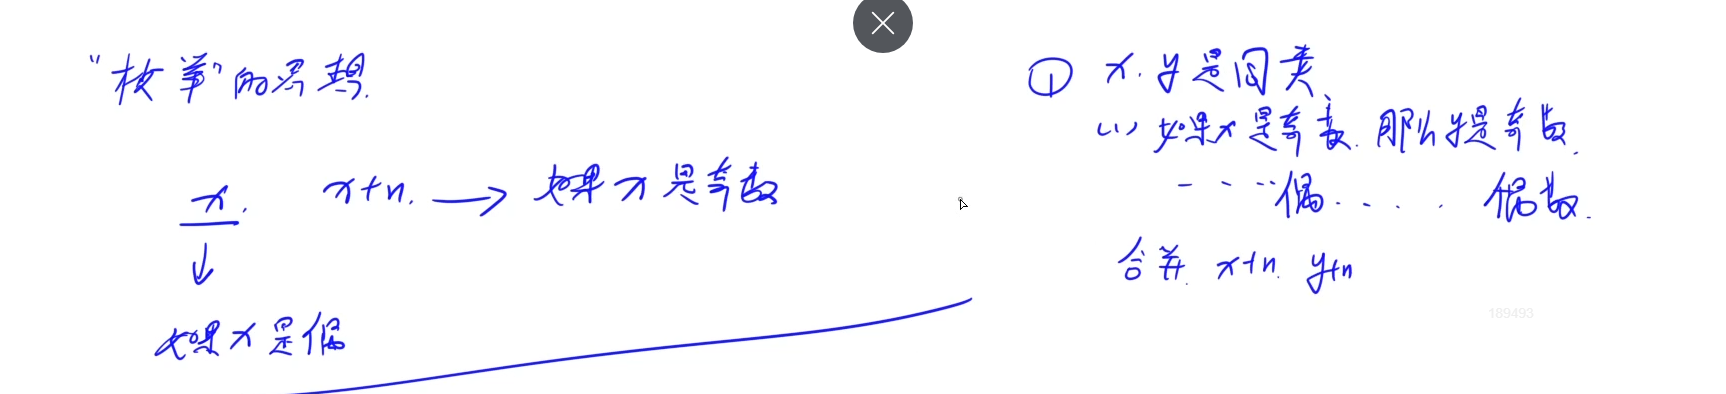 “枚举”的思想.
x.    x+n. → 如果 x 是奇数
↓
如果 x 是偶
① x. y 是同类、
(1) 如果 x 是奇数. 那么 y 是奇数.
- - ··· 偶 · · · · 偶数.
合并. x+n. y+n
189493